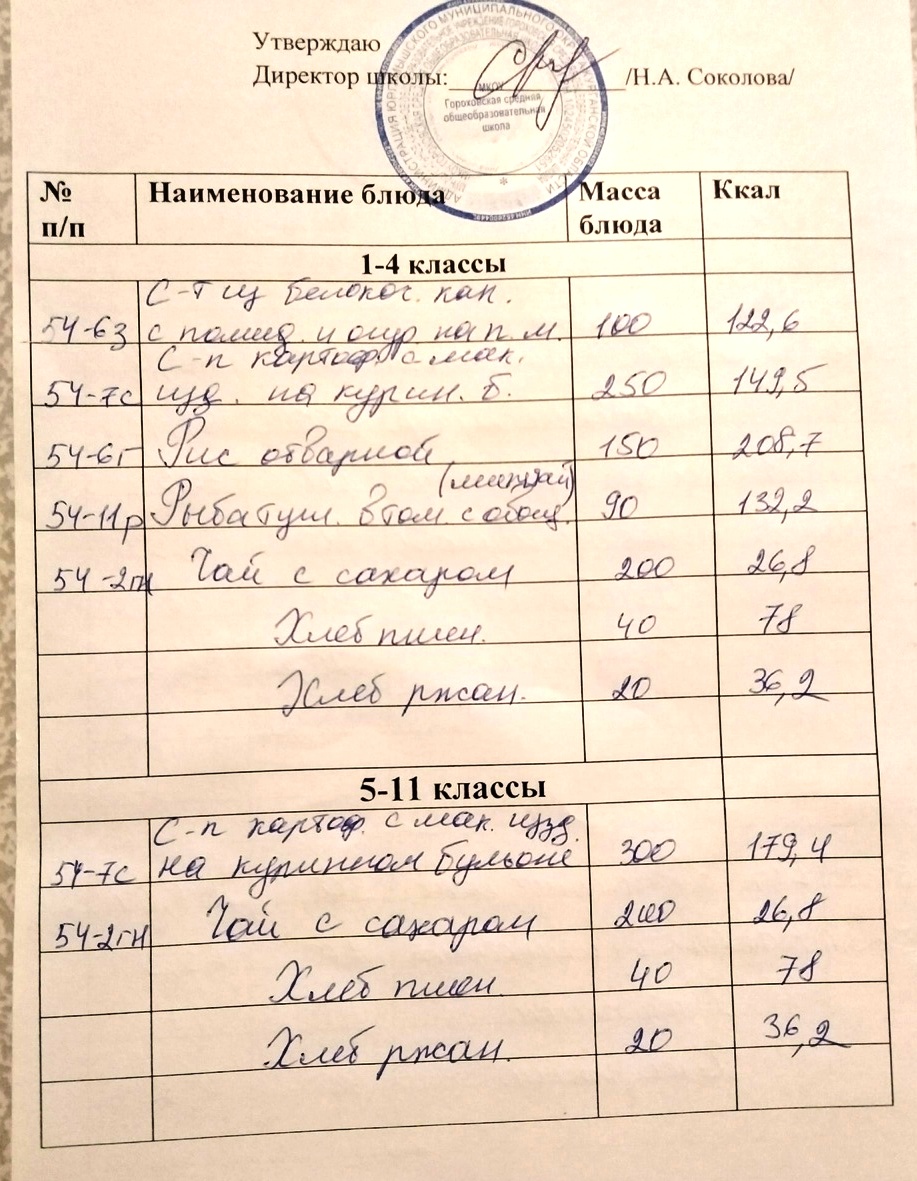 Утверждаю
Директор школы: /Н.А. Соколова/
МКОУ
Гороховская средняя
общеобразовательная
школа
№ п/п Наименование блюда Масса блюда Ккал
1-4 классы
С-т из белокоч. кап.
54-6з с помид. и огур. на п. м. 100 122,6
С-п картоф. с мак.
54-7с изд. на курин. б. 250 149,5
54-6г Рис отварной 150 208,7
(минтай)
54-11р Рыба туш. в том. с овощ. 90 132,2
54-2гн Чай с сахаром 200 26,8
Хлеб пшен. 40 78
Хлеб ржан. 20 36,2
5-11 классы
С-п картоф. с мак. изд.
54-7с на куринном бульоне 300 179,4
54-2гн Чай с сахаром 200 26,8
Хлеб пшен. 40 78
Хлеб ржан. 20 36,2